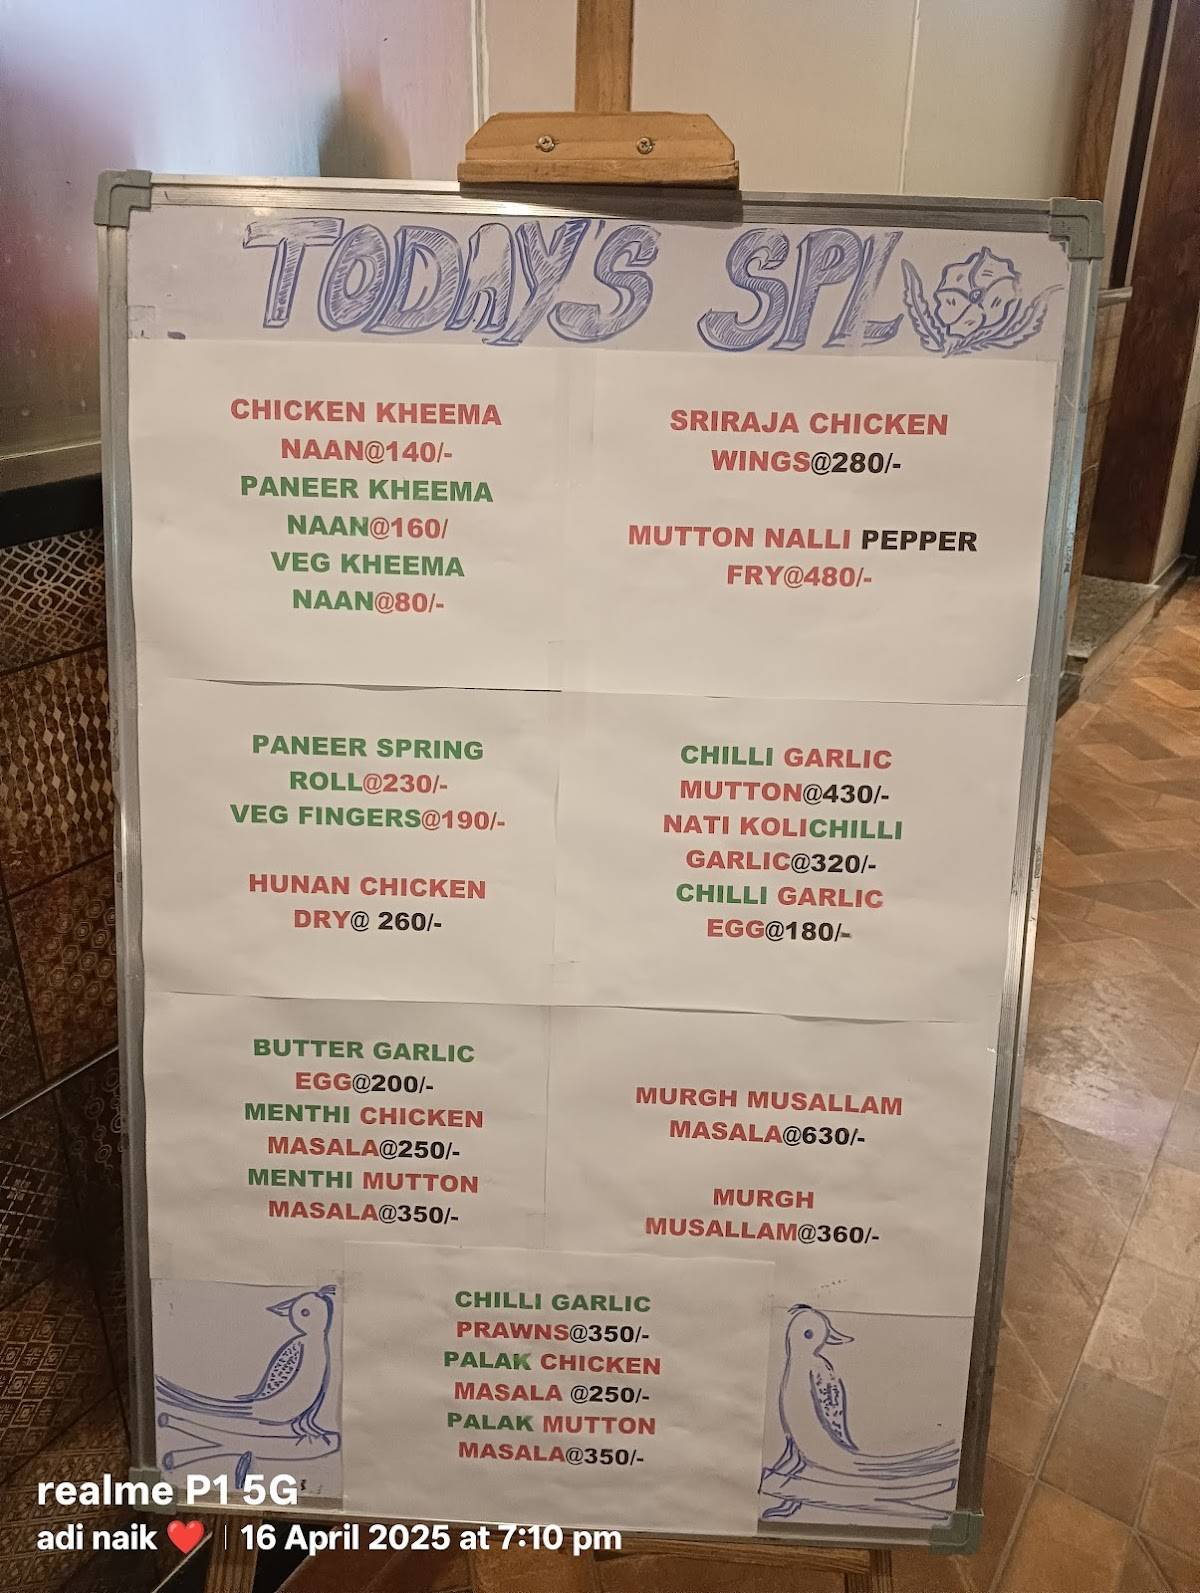 TODAY'S SPL
CHICKEN KHEEMA
NAAN@140/-
PANEER KHEEMA
NAAN@160/
VEG KHEEMA
NAAN@80/-
SRIRAJA CHICKEN
WINGS@280/-
MUTTON NALLI PEPPER
FRY@480/-
PANEER SPRING
ROLL@230/-
VEG FINGERS@190/-
HUNAN CHICKEN
DRY@ 260/-
CHILLI GARLIC
MUTTON@430/-
NATI KOLICHILLI
GARLIC@320/-
CHILLI GARLIC
EGG@180/-
BUTTER GARLIC
EGG@200/-
MENTHI CHICKEN
MASALA@250/-
MENTHI MUTTON
MASALA@350/-
MURGH MUSALLAM
MASALA@630/-
MURGH
MUSALLAM@360/-
CHILLI GARLIC
PRAWNS@350/-
PALAK CHICKEN
MASALA @250/-
PALAK MUTTON
MASALA@350/-
realme P1 5G
adi naik ❤️ | 16 April 2025 at 7:10 pm